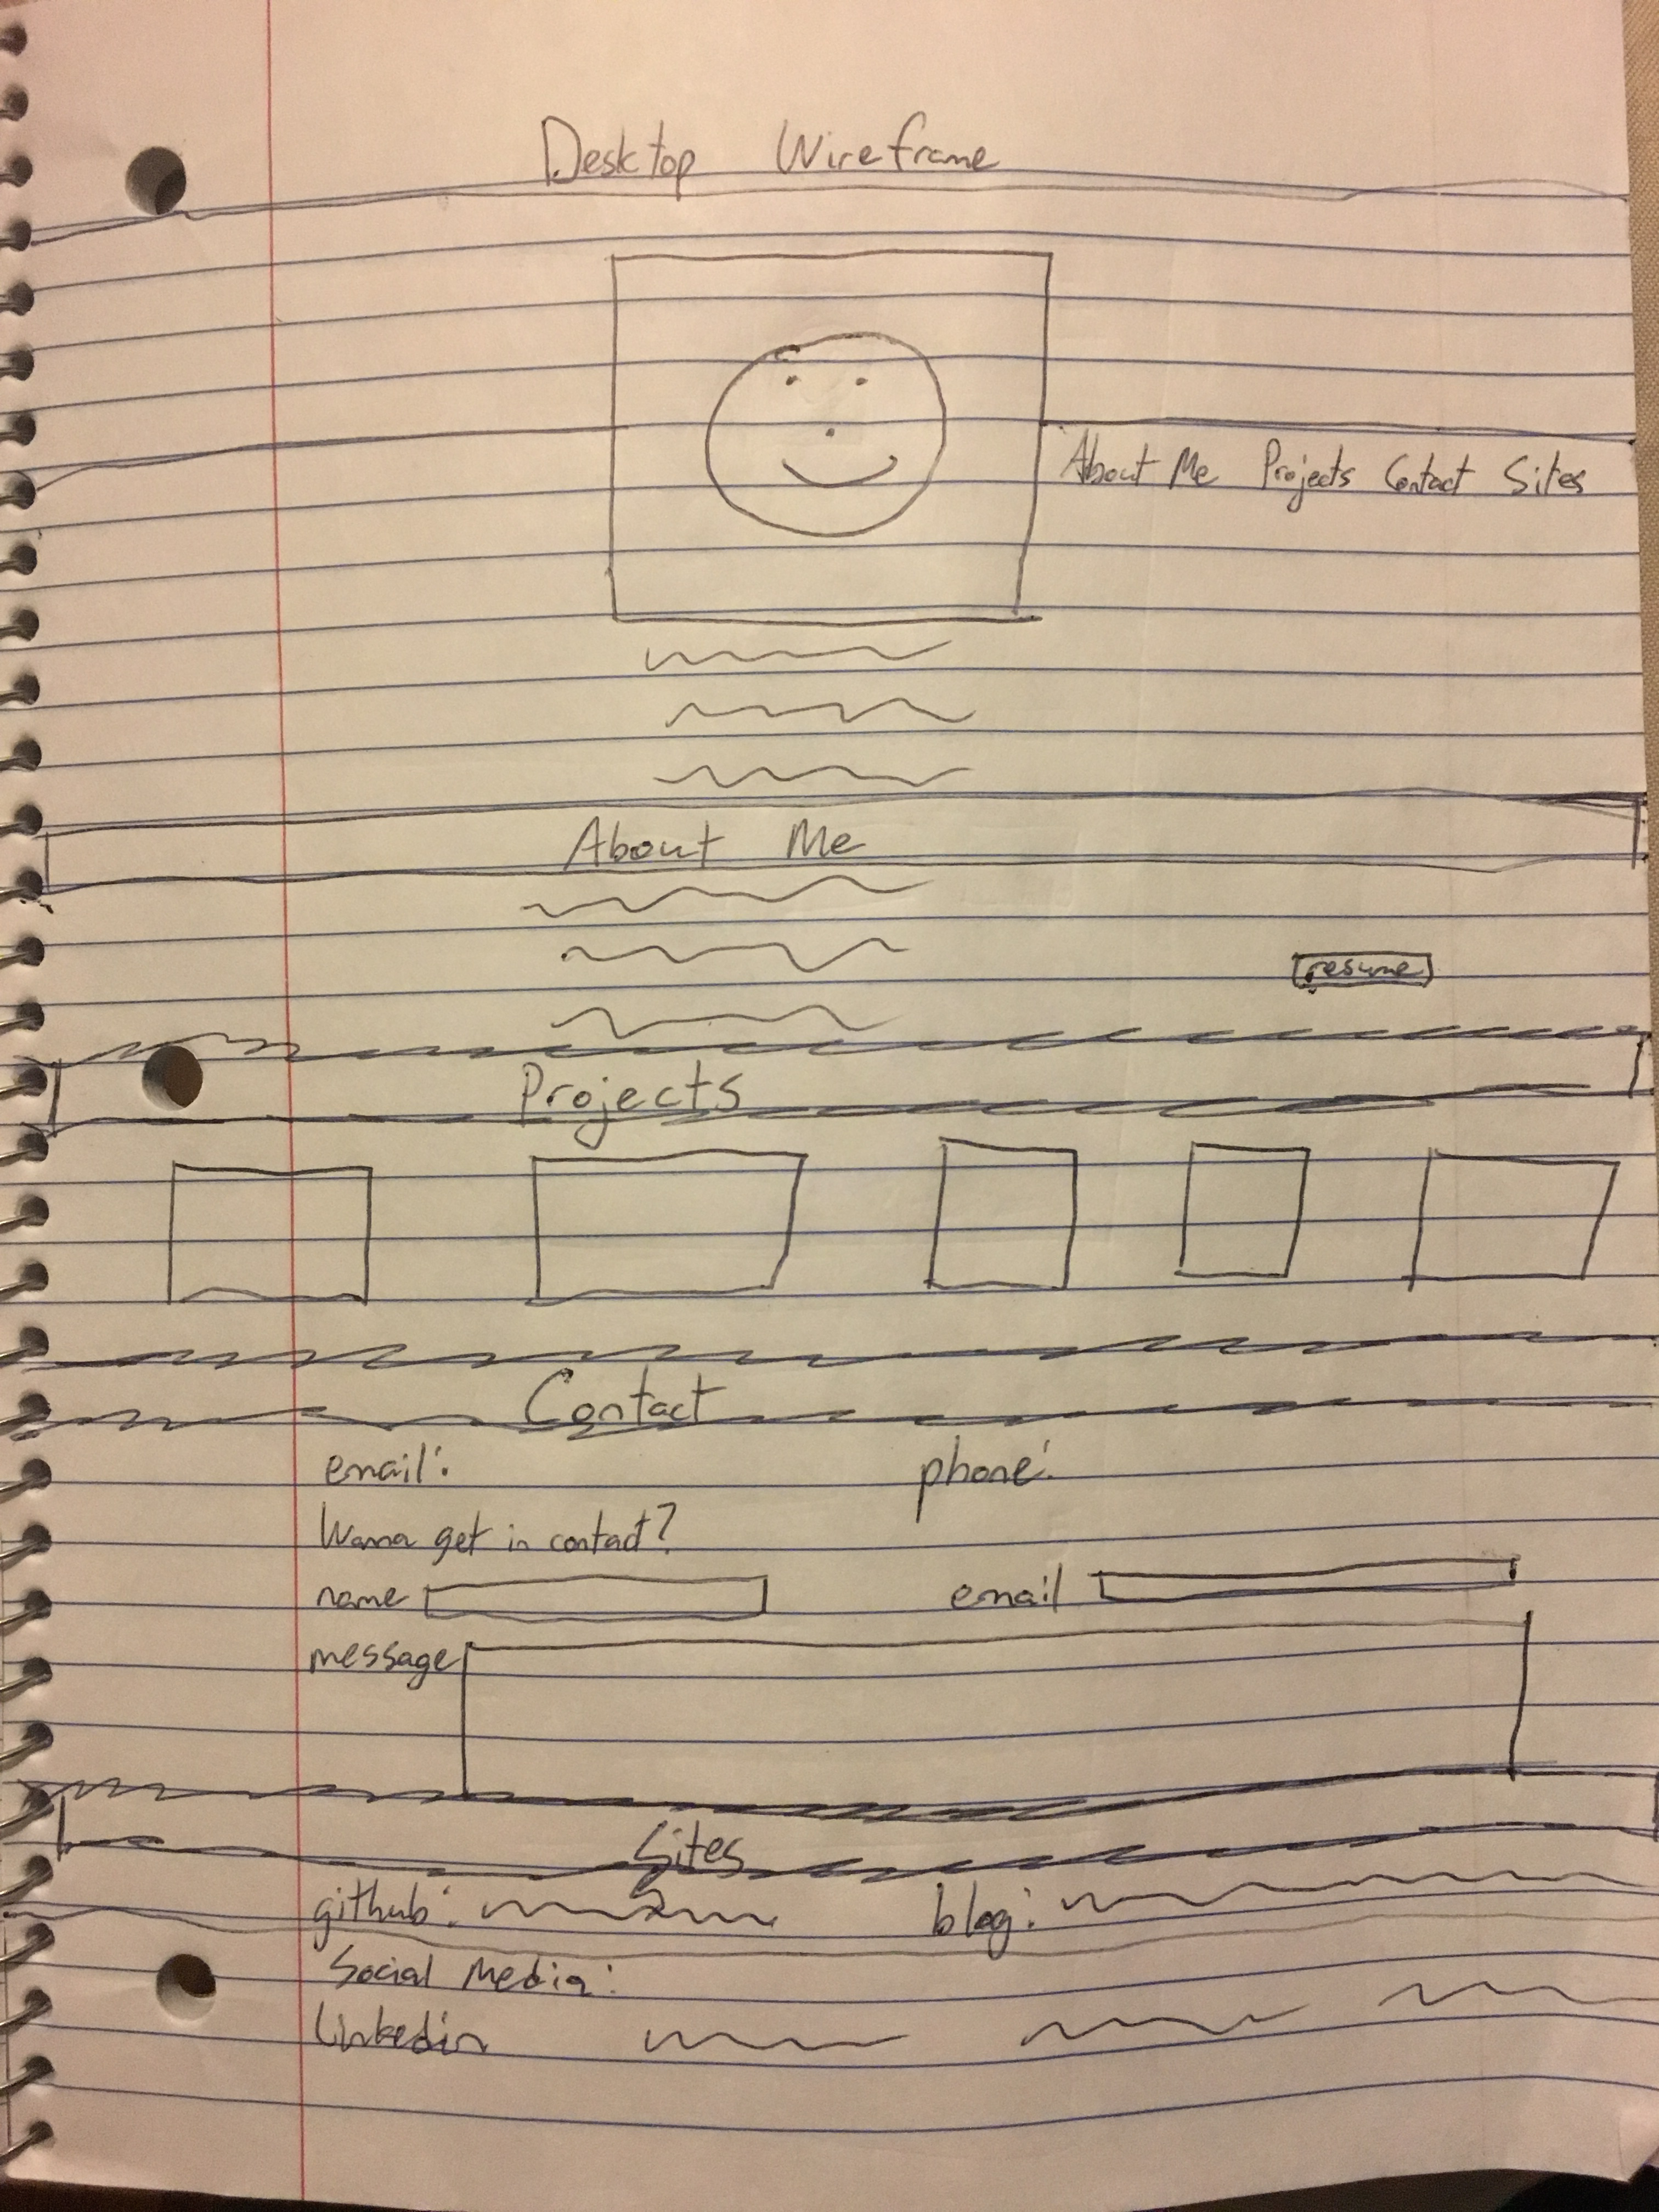 Desktop Wireframe
About Me Projects Contact Sites
About Me
resume
Projects
Contact
email: phone:
Wanna get in contact?
name email
message
Sites
github: blog:
Social Media:
Linkedin